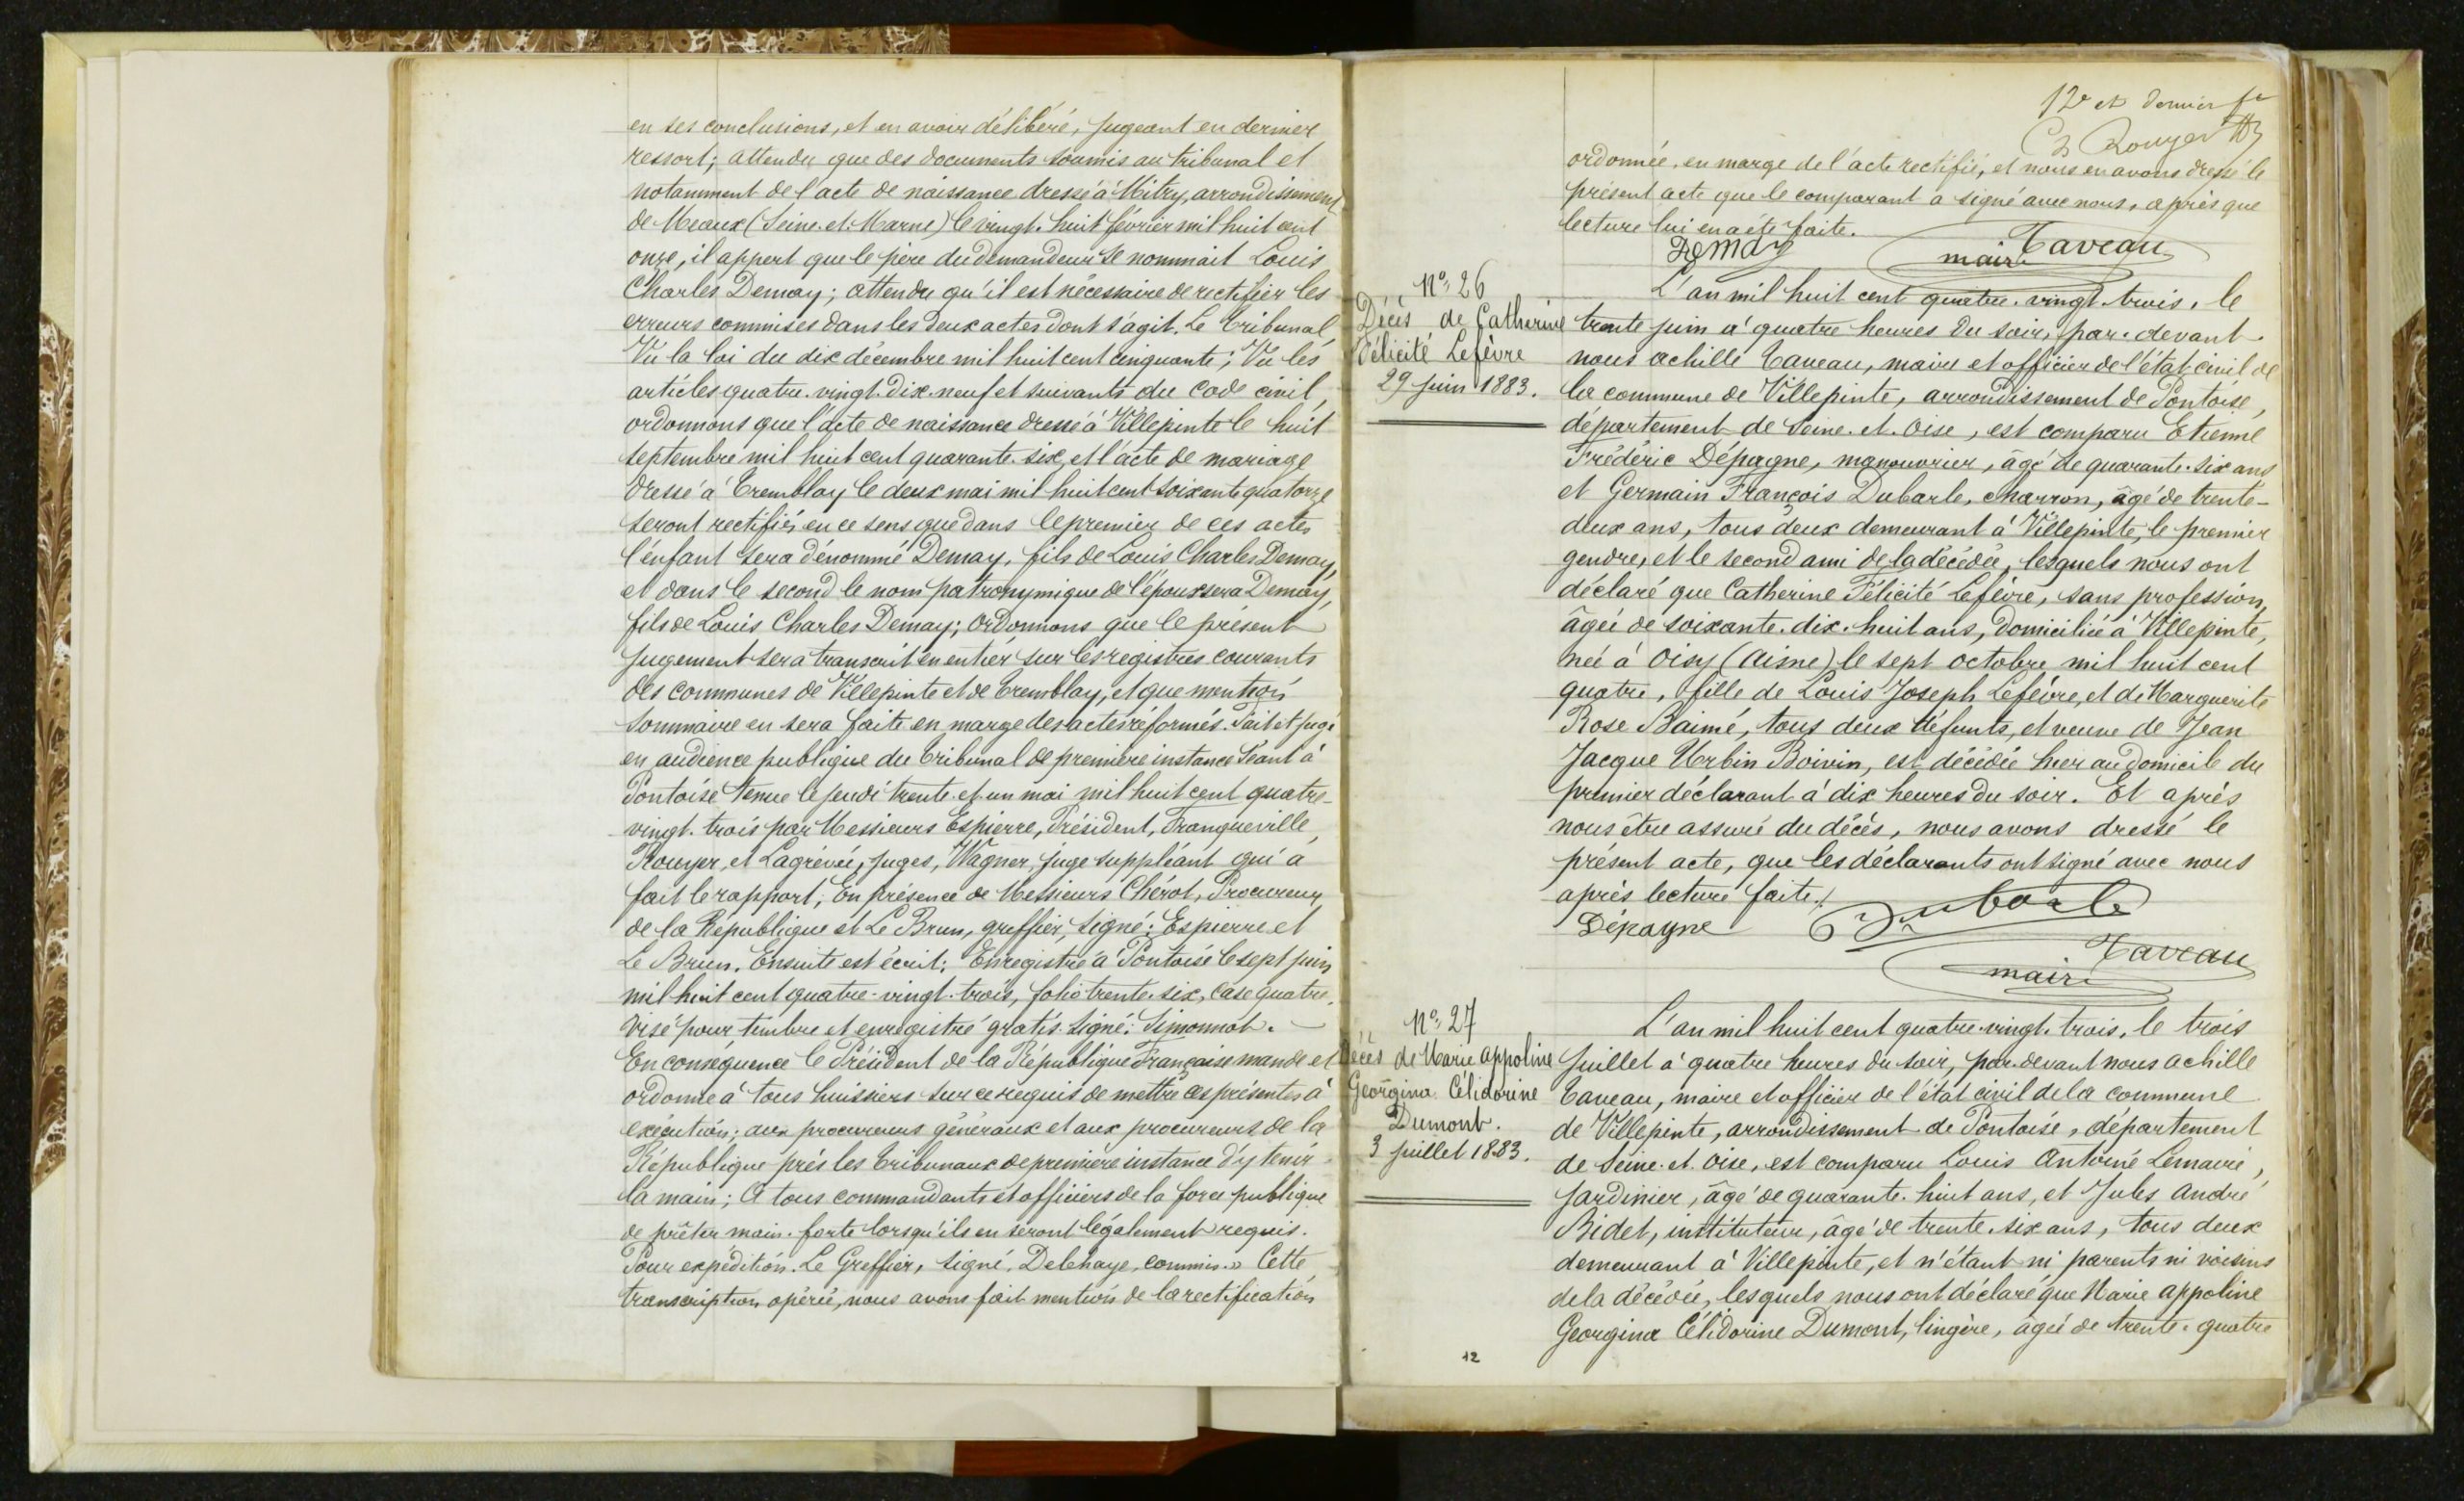 en ses conclusions, et en avoir délibéré, jugeant en dernier
ressort; attendu que des documents soumis au tribunal et
notamment de l'acte de naissance dressé à Mitry, arrondissement
de Meaux (Seine-et-Marne) le vingt-huit février mil huit cent
onze, il appert que le père du demandeur se nommait Louis
Charles Demay; attendu qu'il est nécessaire de rectifier les
erreurs commises dans les deux actes dont s'agit. Le Tribunal,
Vu la loi du dix décembre mil huit cent cinquante; Vu les
articles quatre-vingt-dix-neuf et suivants du Code civil,
ordonnons que l'acte de naissance dressé à Villepinte le huit
septembre mil huit cent quarante-six, et l'acte de mariage
dressé à Tremblay le deux mai mil huit cent soixante quatorze
seront rectifiés en ce sens que dans le premier de ces actes
l'enfant sera dénommé Demay, fils de Louis Charles Demay,
et dans le second le nom patronymique de l'époux sera Demay,
fils de Louis Charles Demay; Ordonnons que le présent
jugement sera transcrit en entier sur les registres courants
des communes de Villepinte et de Tremblay, et que mention
sommaire en sera faite en marge des actes réformés. Fait et jugé
en audience publique du Tribunal de première instance séant à
Pontoise tenue le jeudi trente et un mai mil huit cent quatre-
vingt-trois par Messieurs Espierre, Président, Franqueville,
Rouyer, et Lagrévée, juges, Wagner, juge suppléant qui a
fait le rapport; En présence de Messieurs Chérot, Procureur
de la République et Le Brun, greffier, signé: Espierre et
Le Brun. Ensuite est écrit: Enregistré à Pontoise le sept juin
mil huit cent quatre-vingt-trois, folio trente-six, case quatre,
visé pour timbre et enregistré gratis. Signé: Simonnot. —
En conséquence le Président de la République Française mande et
ordonne à tous huissiers sur ce requis de mettre ces présentes à
exécution; aux procureurs généraux et aux procureurs de la
République près les Tribunaux de première instance d'y tenir
la main; A tous commandants et officiers de la force publique
de prêter main-forte lorsqu'ils en seront légalement requis.
Pour expédition. Le Greffier, signé, Delehaye, commis.» Cette
transcription opérée, nous avons fait mention de la rectification
12e et dernier fe
Ch Rouyer
ordonnée, en marge de l'acte rectifié, et nous en avons dressé le
présent acte que le comparant a signé avec nous, après que
lecture lui en a été faite.
Demay
Taveau
maire
No 26
Décès de Catherine
Félicité Lefèvre
29 juin 1883.
L'an mil huit cent quatre-vingt-trois, le
trente juin à quatre heures du soir, par-devant
nous Achille Taveau, maire et officier de l'état civil de
la commune de Villepinte, arrondissement de Pontoise,
département de Seine-et-Oise, est comparu Etienne
Frédéric Dépagne, manouvrier, âgé de quarante-six ans
et Germain François Dubarle, charron, âgé de trente-
deux ans, tous deux demeurant à Villepinte, le premier
gendre, et le second ami de la décédée, lesquels nous ont
déclaré que Catherine Félicité Lefèvre, sans profession,
âgée de soixante-dix-huit ans, domiciliée à Villepinte,
née à Oisy (Aisne) le sept octobre mil huit cent
quatre, fille de Louis Joseph Lefèvre, et de Marguerite
Rose Baimé, tous deux défunts, et veuve de Jean
Jacque Urbin Boivin, est décédée hier au domicile du
premier déclarant à dix heures du soir. Et après
nous être assuré du décès, nous avons dressé le
présent acte, que les déclarants ont signé avec nous
après lecture faite.
Dépagne
Dubarle
Taveau
maire
No 27
Décès de Marie Appoline
Georgina Célidorine
Dumont.
3 juillet 1883.
L'an mil huit cent quatre-vingt-trois, le trois
juillet à quatre heures du soir, par-devant nous Achille
Taveau, maire et officier de l'état civil de la commune
de Villepinte, arrondissement de Pontoise, département
de Seine-et-Oise, est comparu Louis Antoine Lemaire,
jardinier, âgé de quarante-huit ans, et Jules André
Bidet, instituteur, âgé de trente-six ans, tous deux
demeurant à Villepinte, et n'étant ni parents ni voisins
de la décédée, lesquels nous ont déclaré que Marie Appoline
Georgina Célidorine Dumont, lingère, âgée de trente-quatre
12